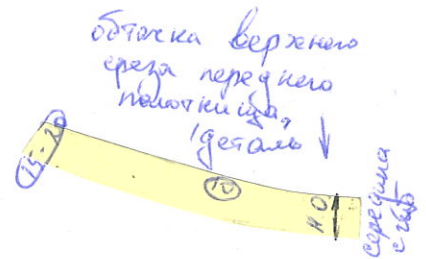 обтачка верхнего
среза переднего
полотнища,
1 деталь
15-20
10
НО
середина
сгиб